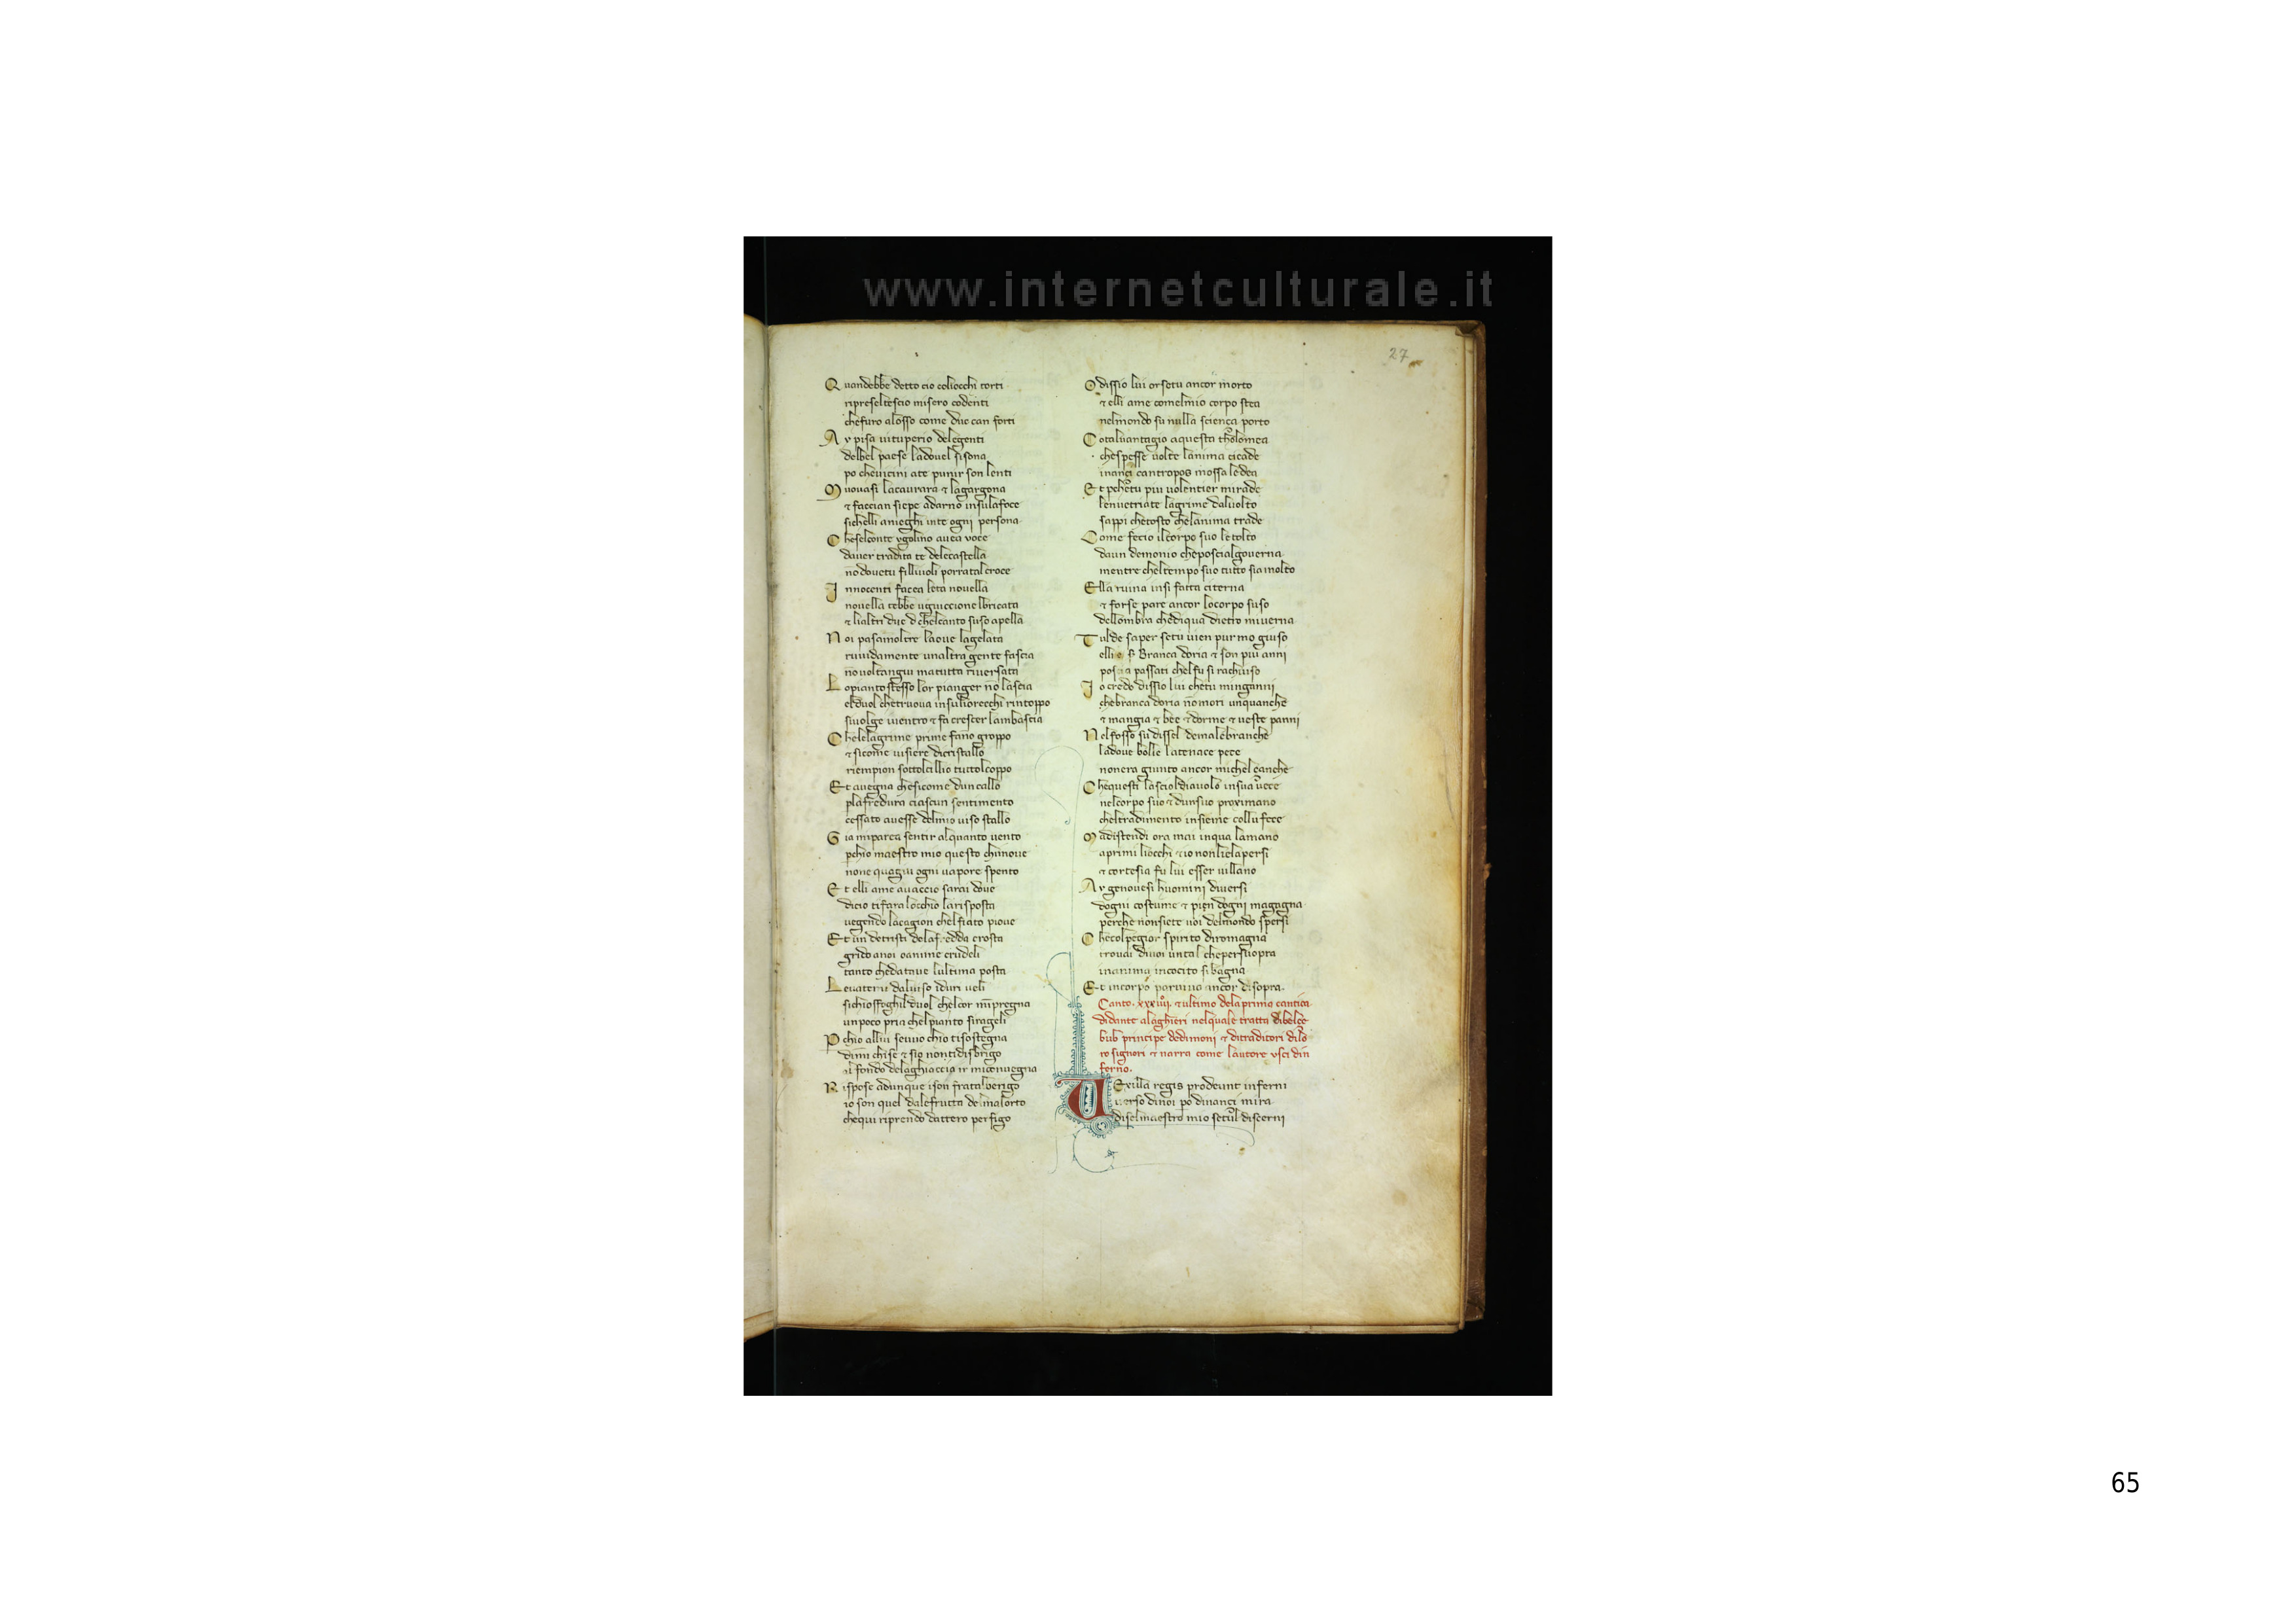 www.internetculturale.it
27
Quandebbe detto cio coliocchi torti
ripreseltescio misero codenti
chefuro alosso come due can forti
Ay pisa vituperio delegenti
delbel paese ladovel sisona
po chevicini ate punir son lenti
Muovasi lacavrara ⁊ lagargona
⁊ faccian siepe adarno insulafoce
sichelli anieghi inte ogni persona
Cheselconte ygolino avea voce
daver tradita te delecastella
nō dovetu filliuoli porratal croce
Innocenti facea leta novella
novella tebbe uguiccione lbricata
⁊ lialtri due chelcanto suso apella
Noi pasamoltre laove lagelata
ruvidamente unaltra gente fascia
nō voltangiu matutta riversata
Lopianto stesso lor pianger nō lascia
elduol chetruova insuliorecchi rintoppo
sivolge ventro ⁊ fa crescer lambascia
Chelelagrime prime fāno groppo
⁊ sicome visiere dicristallo
riempion sottolcillio tuttolcoppo
Et avegna chesicome dun callo
plafredura ciascun sentimento
cessato avesse delmio viso stallo
Gia miparea sentir alquanto vento
pchio maestro mio questo chimove
none quagiu ogni vapore spento
Et elli ame avaccio sarai dove
dicio tifara locchio larisposta
vegendo lacagion chelfiato piove
Et un detristi delafredda crosta
grido anoi oanime crudeli
tanto chedatave lultima posta
Levatemi dalviso iduri veli
sichio sfoghil duol chelcor mīpregna
unpoco pria chelpianto siragieli
Pchio allui sevuo chio tisostegna
dimi chise ⁊ sio nontidisbrigo
al fondo delaghiaccia ir miconvegna
Rispose adunque ison fratalberigo
io son quel dalefrutta delmalorto
chequi riprendo dattero perfigo
O dissio lui orsetu ancor morto
⁊ elli ame comelmio corpo stea
nelmondo su nulla sciença porto
Cotalvantagio aquesta tholomea
chespesse volte lanima cicade
inançi cantropos mossa ledea
Et pchetu piu volentier mirade
lenvetriate lagrime dalvolto
sappi chetosto chelanima trade
Come fecio ilcorpo suo letolto
daun demonio cheposcialgoverna
mentre cheltempo suo tutto siavolto
Ella ruina insi fatta citerna
⁊ forse pare ancor locorpo suso
dellombra chediqua dietro miverna
Tulde saper setu vien pur mo giuso
elli e s Branca doria ⁊ son piu anni
poscia passati chelfu si rachiuso
Io credo dissio lui chetu minganni
chebranca doria nō mori unquanche
⁊ mangia ⁊ bee ⁊ dorme ⁊ veste panni
Nelfosso su dissel demalebranche
ladove bolle latenace pece
nonera giunto ancor michel çanche
Chequesti lascioldiavolo insua vece
nelcorpo suo ⁊ dunsuo proximano
cheltradimento insieme collui fece
Madistendi ora mai inqua lamano
aprimi liocchi ⁊ io nonlielapersi
⁊ cortesia fu lui esser villano
Ay genovesi huomini diversi
dogni costume ⁊ pien dogni magagna
perche nonsiete voi delmondo spersi
Checolpegior spirito diromagna
trovai divoi untal chepersuopra
inanima incocito sibagna
Et incorpo parvivo ancor disopra.
Canto. xxxiiii. ⁊ ultimo delaprima cantica
didante alaghieri nelquale tratta dibelce
bub principe dedimoni ⁊ ditraditori dilo
ro signori ⁊ narra come lautore usci din
ferno.
VExilla regis prodeunt inferni
verso dinoi po dinançi mira
diselmaestro mio setul discerni
65